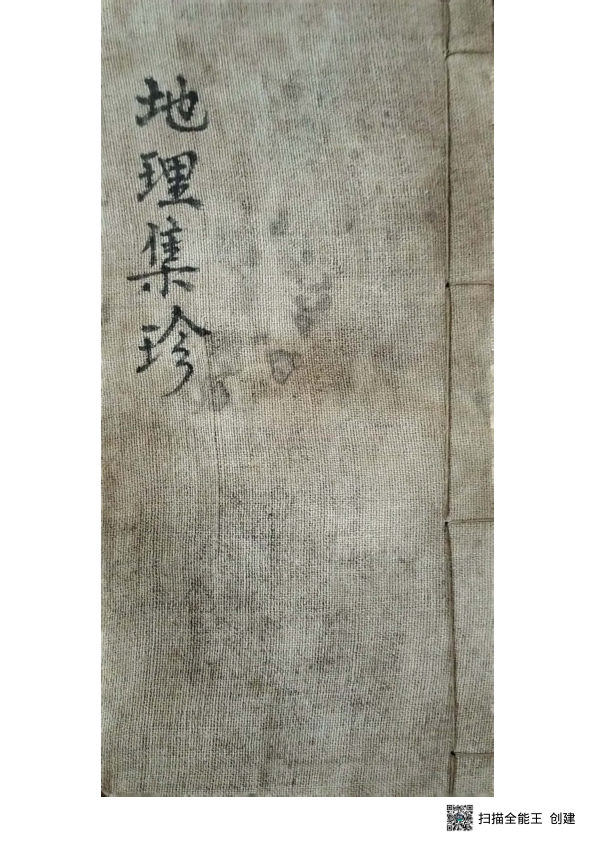 地理集珍
扫描全能王 创建